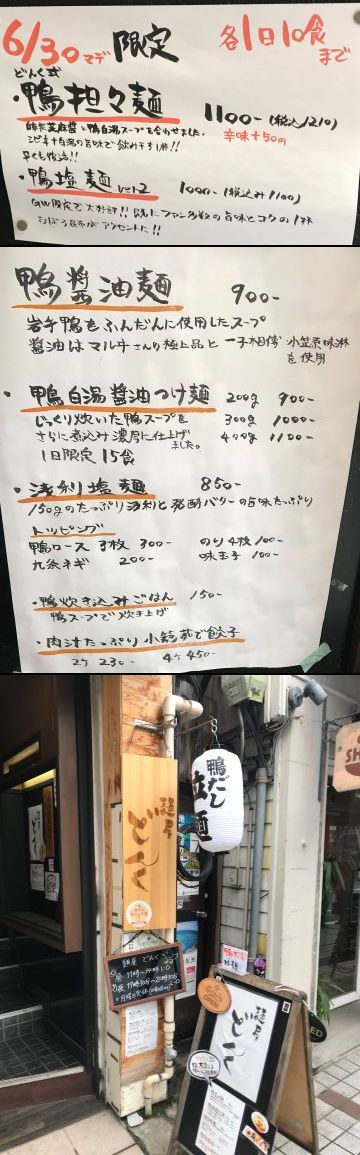 6/30マデ 限定 各1日10食まで
どんく式
・鴨担々麺 1100-(税込1210)
自家製芝麻醤と鴨白湯スープを合わせました。 辛味+50円
早くも復活!!
・鴨塩麺 ver.2 1000-(税込み1100)
GW限定で大好評!! 既にファン多数の旨味とコクの1杯
鴨醤油麺 900-
岩手鴨をふんだんに使用したスープ
醤油はマルキさんの極上品と一子相傳 小笠原味淋
を使用
・鴨白湯醤油つけ麺 200g 900-
じっくり炊いた鴨スープを 300g 1000-
さらに煮込み濃厚に仕上げ 400g 1100-
ました。
1日限定15食
・浅利塩麺 850-
150gのたっぷり浅利と発酵バターの旨味たっぷり
トッピング
鴨ロース3枚 300- のり4枚100-
九条ネギ 200- 味玉子 100-
・鴨炊き込みごはん 150-
鴨スープで炊き上げ
・肉汁たっぷり小籠包で餃子
2ケ 230- 4ケ 450-
麺屋
どんく
鴨だし
拉麺
麺屋 どんく
昼 11時~14時L.O
麺屋
どんく